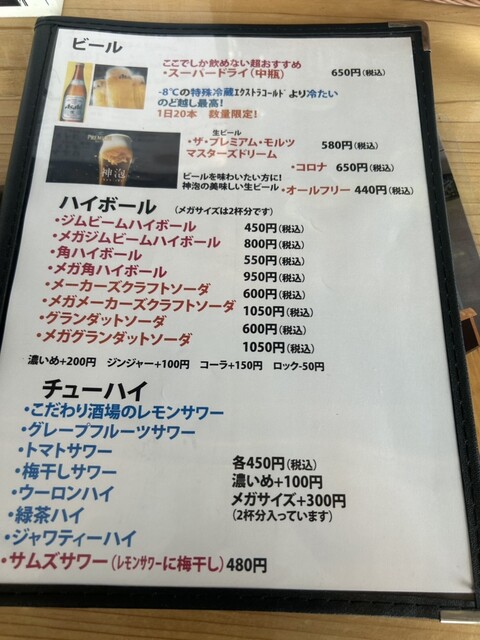 ビール
ここでしか飲めない超おすすめ
・スーパードライ（中瓶） 650円（税込）
-8℃の特殊冷蔵ｴｸｽﾄﾗｺｰﾙﾄﾞより冷たい
のど越し最高！
1日20本 数量限定！
Asahi
生ビール
・ザ・プレミアム・モルツ 580円（税込）
マスターズドリーム
神泡
・コロナ 650円（税込）
ビールを味わいたい方に！
神泡の美味しい生ビール ・オールフリー 440円（税込）
ハイボール （メガサイズは2杯分です）
・ジムビームハイボール 450円（税込）
・メガジムビームハイボール 800円（税込）
・角ハイボール 550円（税込）
・メガ角ハイボール 950円（税込）
・メーカーズクラフトソーダ 600円（税込）
・メガメーカーズクラフトソーダ 1050円（税込）
・グランダットソーダ 600円（税込）
・メガグランダットソーダ 1050円（税込）
濃いめ+200円 ジンジャー+100円 コーラ+150円 ロック-50円
チューハイ
・こだわり酒場のレモンサワー
・グレープフルーツサワー
・トマトサワー
・梅干しサワー
・ウーロンハイ
・緑茶ハイ
・ジャワティーハイ
各450円（税込）
濃いめ+100円
メガサイズ+300円
（2杯分入っています）
・サムズサワー（ﾚﾓﾝｻﾜｰに梅干し） 480円